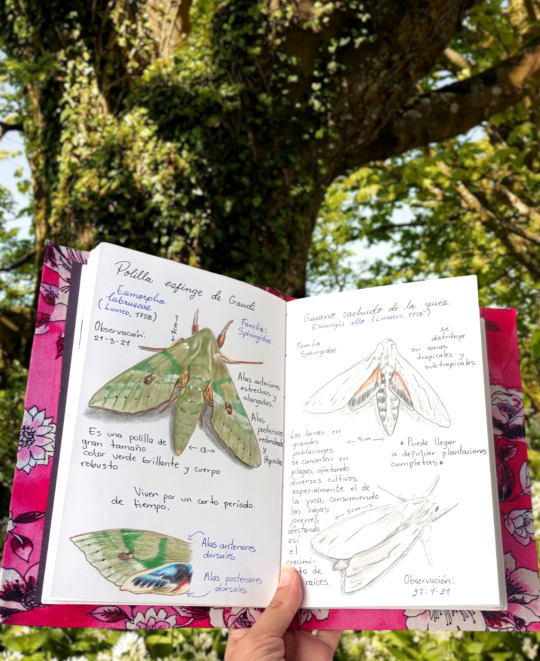 Polilla esfinge de Gaudi
Eumorpha
labruscae
(Linneo, 1758)
Observación:
27-3-21
Familia:
Sphingidae
Alas anteriores
estrechas y
alargadas.
Alas
posteriores
redondeadas
y
Es una polilla de
gran tamaño
color verde brillante y cuerpo
robusto
Viven por un corto período
de tiempo.
Alas anteriores
dorsales
Alas posteriores
dorsales
Gusano cachudo de la yuca
Erinnyis ello (Linneo, 1758)
Familia
Sphingidae
se
distribuye
en zonas
tropicales y
subtropicales
9cm
* Puede llegar
a defoliar plantaciones
completas *
Las larvas en
grandes
poblaciones
se convierten en
plagas, afectando
diversos cultivos,
especialmente el de
la yuca, consumiendo
las hojas
jóvenes
afectando
así
el
crecimi-
to de
raíces.
9cm
Observación:
27-1-21